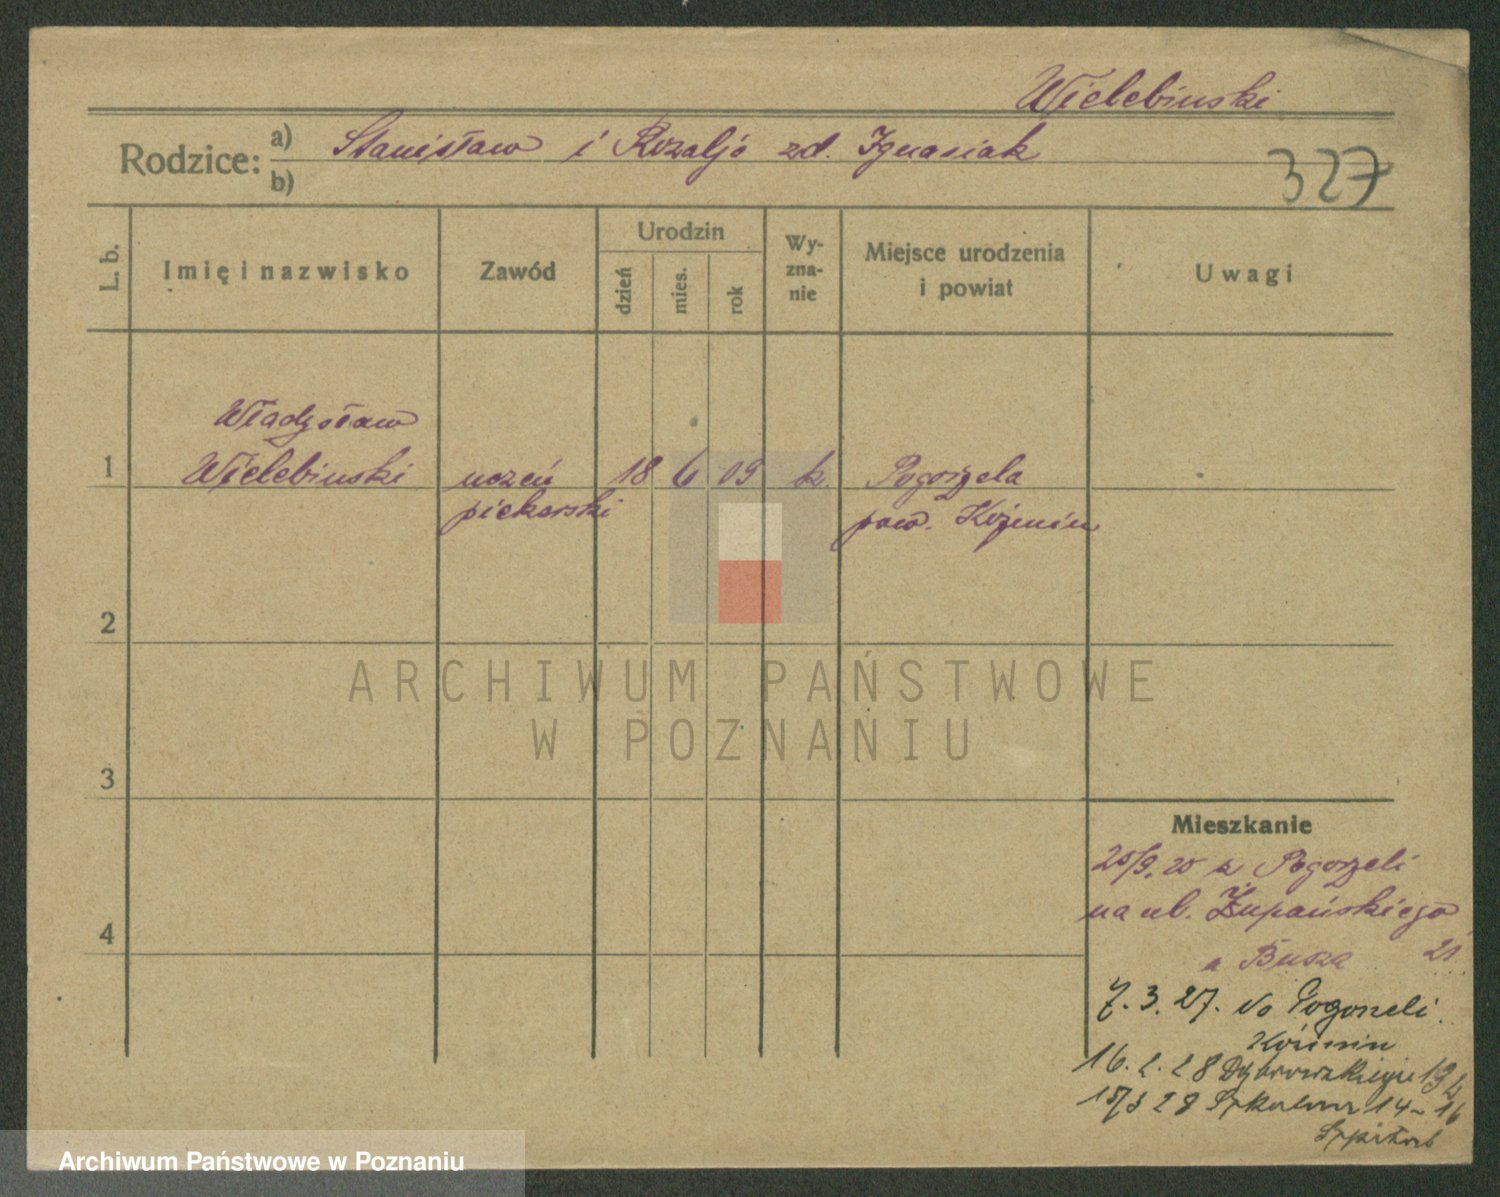 Wielebinski
Rodzice: a) Stanisław i Rozalja zd. Ignasiak
b)
327
L. b.
Imię i nazwisko
Zawód
Urodzin
dzień
mies.
rok
Wy-
zna-
nie
Miejsce urodzenia
i powiat
Uwagi
Władysław
1 Wielebinski uczeń 18 6 09 k. Pogorzela
piekarski pow. Koźmin
2
3
4
Mieszkanie
z Pogorzeli
na ul. Żupańskiego
u Busza 21
7. 3. 27. do Pogorzeli
Koźmin
16. 2. 28 Dąbrowskiego
28 Szkolna 14-16
Szpital
ARCHIWUM PAŃSTWOWE
W POZNANIU
Archiwum Państwowe w Poznaniu